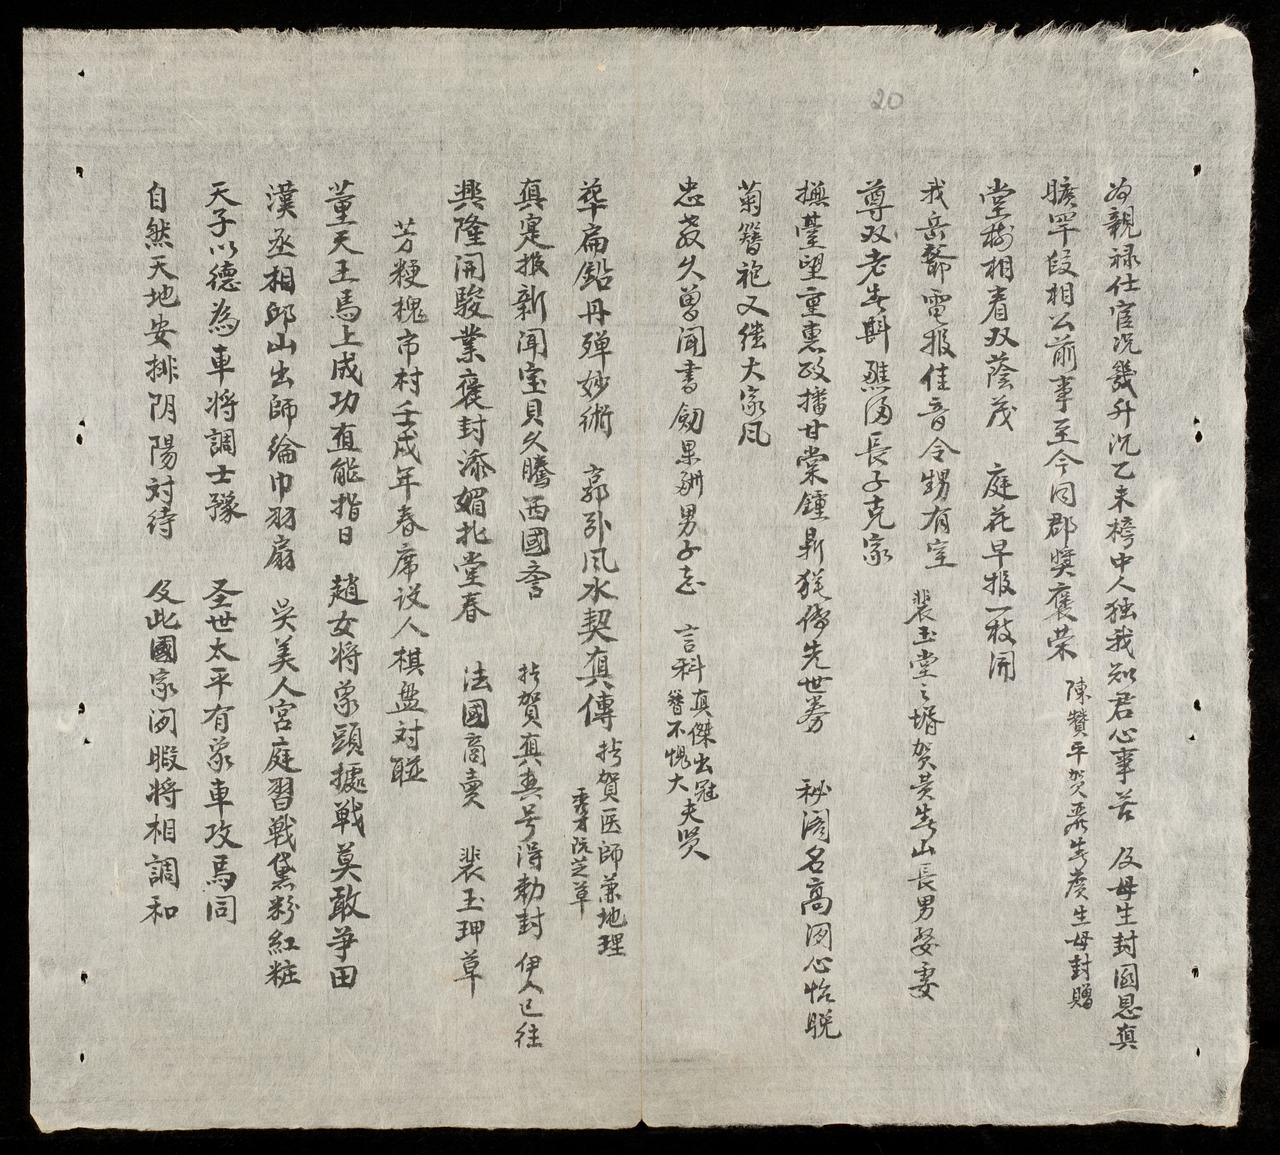 20
為親祿仕宦况幾升沉乙未榜中人独我知君心事苦 及母生封國恩真
曠罕段相公前事至今同郡獎褒荣 陳贊平賀嚴先度生母封贈
堂樹相春双蔭茂 庭花早报一枝開
我岳爺電报佳音令甥有室 裴玉堂之壻賀黃先山長男娶妻
尊双老先斟醮酒長子克家
撫臺望重惠政播甘棠鍾鼎猶傳先世劵 秘阁名高図心怡晚
菊簪袍又继大家风
忠孝久曾闻書劍果酬男子志 言科真傑出冠簪不愧大夫贤
華扁鉛丹殫妙術 郭孙风水契真傳 抄賀医師兼地理秀才阮芝草
真寔报新闻宝貝久騰西國誉 抄賀真真号得勅封 伊人已往
興隆開駿業褒封添媚北堂春 法國商賣 裴玉珅草
芳粳槐市村壬戌年春席设人棋盘对聯
董天王馬上成功直能指日 趙女将象頭據戦莫敢爭田
漢丞相邱山出師綸巾羽扇 吳美人宮庭習戦黛粉紅粧
天子以德為車将調士豫 圣世太平有象車攻馬同
自然天地安排阴陽对待 及此國家闲暇将相調和